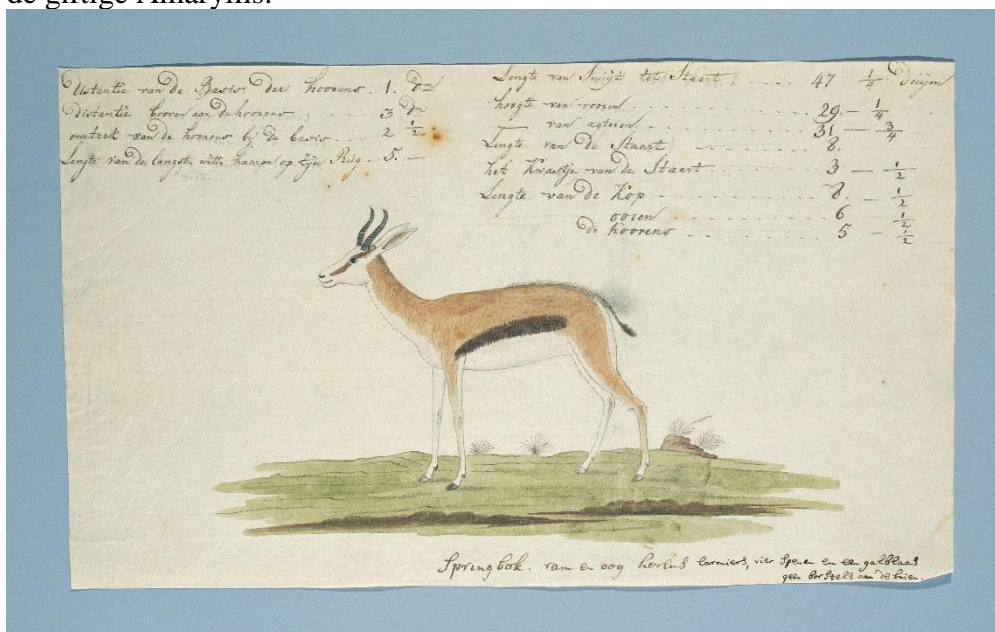 de giftige Amaryllis.
distantie van de Basis der hoorens . 1. dm
distantie boven aan de hoorens ; 3 dm
omtrek van de hoorens bij de basis . . . 2 1/2
Lengte van de langste witte hairen op zijn Rug . 5. —
Lengte van Snuijt tot Staart : . . . . 47 1/4 duijm
hoogte van vooren . . . . . 29. — 1/4
— van agteren . . . . . 31 — 3/4
Lengte van de Staart . . . . . 8.
het Kwastje van de Staart . . . . 3 — 1/2
Lengte van de Kop . . . . . 8. — 1/2
ooren . . . . . 6 1/2
de hoorens . . . . . 5 — 1/2
Springbok. ram en ooy larmiers, vier Spenen en een galblaas
geen borstels aan de knien.